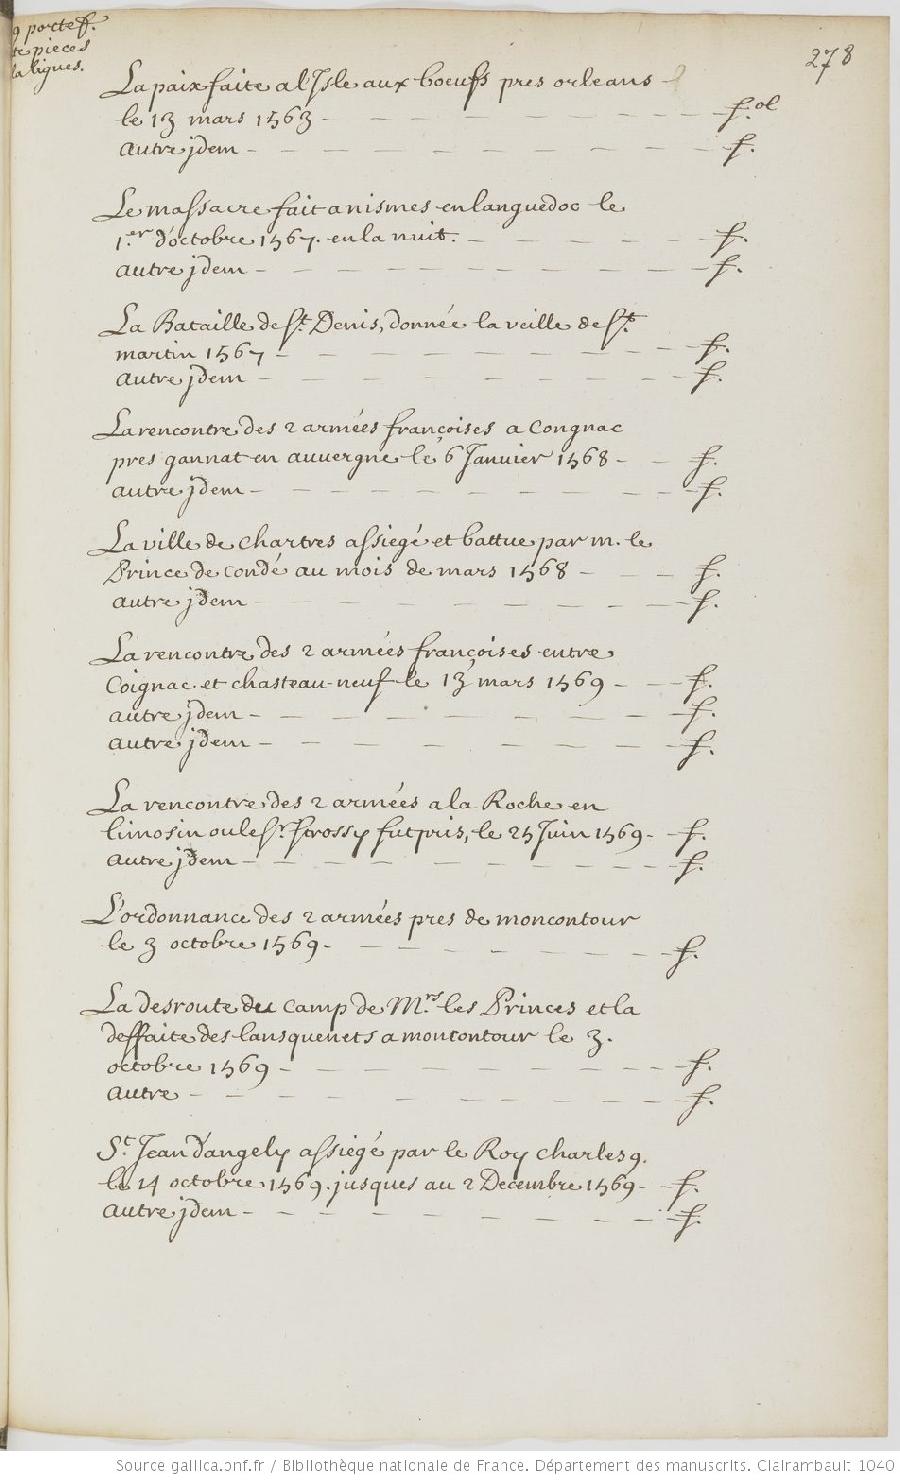 9 portef.
te pieces
la ligues.
278
La paix faite a l'Jsle aux boeufs pres orleans
le 13 mars 1563 - - - - - - - - f.ol
autre jdem - - - - - - - - - f.
Le massacre fait a nismes en languedoc le
1.er d'octobre 1567. en la nuit. - - - - - - f.
autre jdem - - - - - - - - - f.
La Bataille de St. Denis, donnée la veille de St.
martin 1567 - - - - - - - - f.
autre jdem - - - - - - - - f.
La rencontre des 2 armées françoises a Congnac
pres gannat en auvergne le 6 Janvier 1568 - - f.
autre jdem - - - - - - - - f.
La ville de chartres assiegé et battue par m. le
Prince de condé au mois de mars 1568 - - - f.
autre jdem - - - - - - - - f.
La rencontre des 2 armées françoises entre
Coignac et chasteau-neuf le 13 mars 1569 - - f.
autre jdem - - - - - - - - f.
autre jdem - - - - - - - - f.
La rencontre des 2 armées a la Roche en
limosin ou le Sr. Strossy fut pris, le 25 Juin 1569 - f.
autre jdem - - - - - - - - f.
L'ordonnance des 2 armées pres de moncontour
le 3 octobre 1569 - - - - - - - f.
La desroute du camp de Mrs. les Princes et la
deffaite des lansquenets a montontour le 3.
octobre 1569 - - - - - - - - f.
autre - - - - - - - - f.
St. Jean d'angely assiegé par le Roy charles 9.
le 14 octobre 1569. jusques au 2 Decembre 1569 - f.
autre jdem - - - - - - - - f.
Source gallica.bnf.fr / Bibliothèque nationale de France. Département des manuscrits. Clairambault 1040